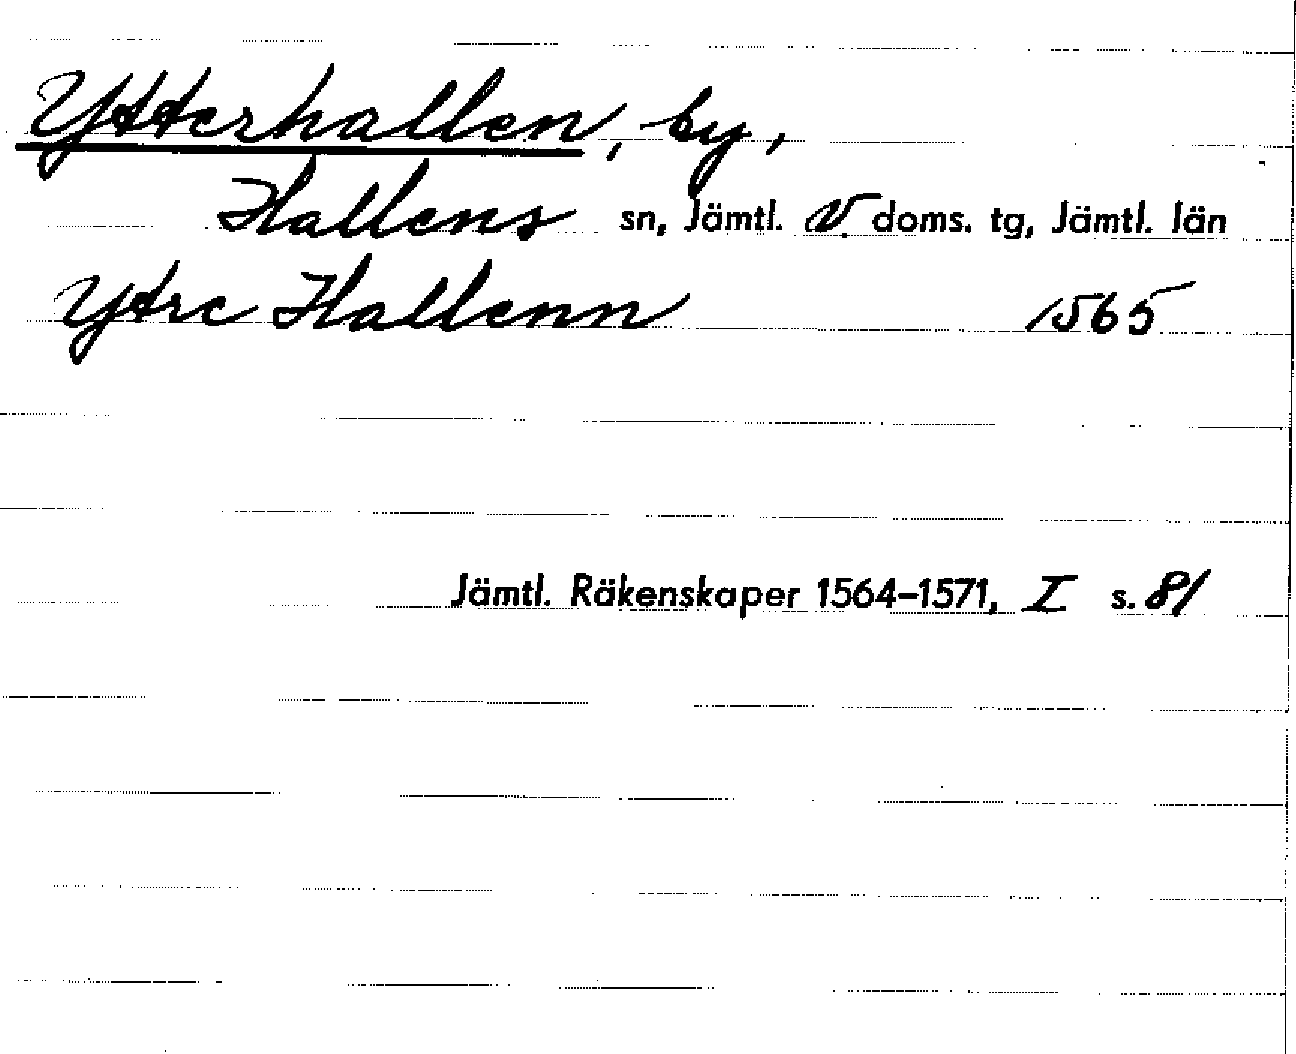 Ytterhallen, by,
Hallens sn, Jämtl. V. doms. tg, Jämtl. län
Ytre Hallenn 1565
Jämtl. Räkenskaper 1564–1571, I s. 81